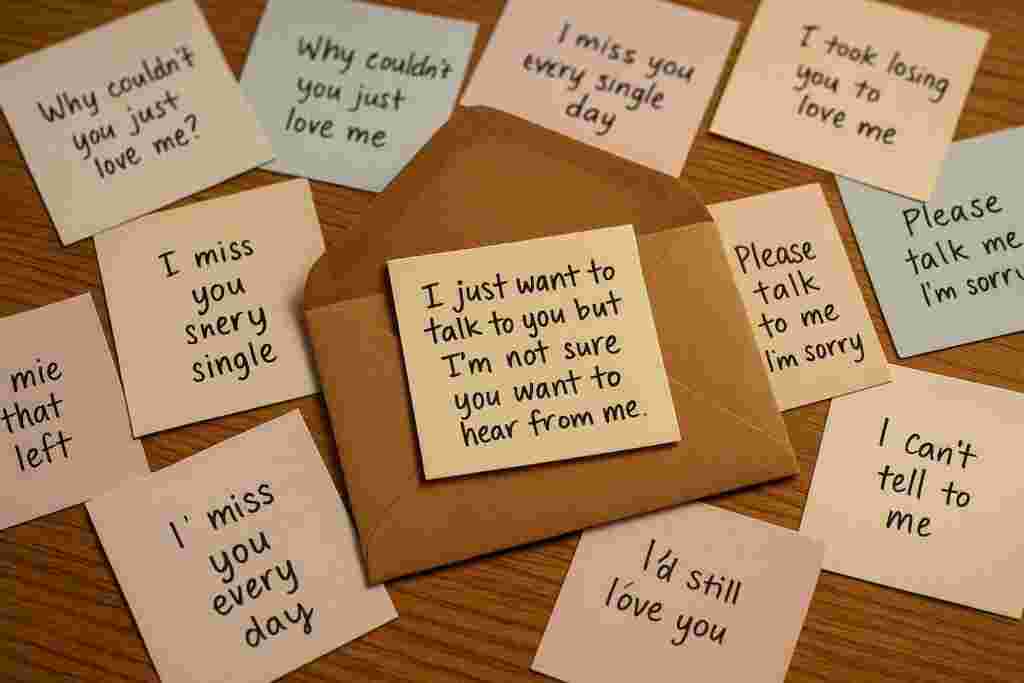 Why couldn't
you just
love me?
Why couldn't
you just
love me
I miss you
every single
day
I took losing
you to
love me
I miss
you
snery
single
I just want to
talk to you but
I'm not sure
you want to
hear from me.
Please
talk
to me
I'm sorry
Please
talk me
I'm sorry
mie
that
left
I' miss
you
every
day
I'd still
lóve you
I can't
tell to
me